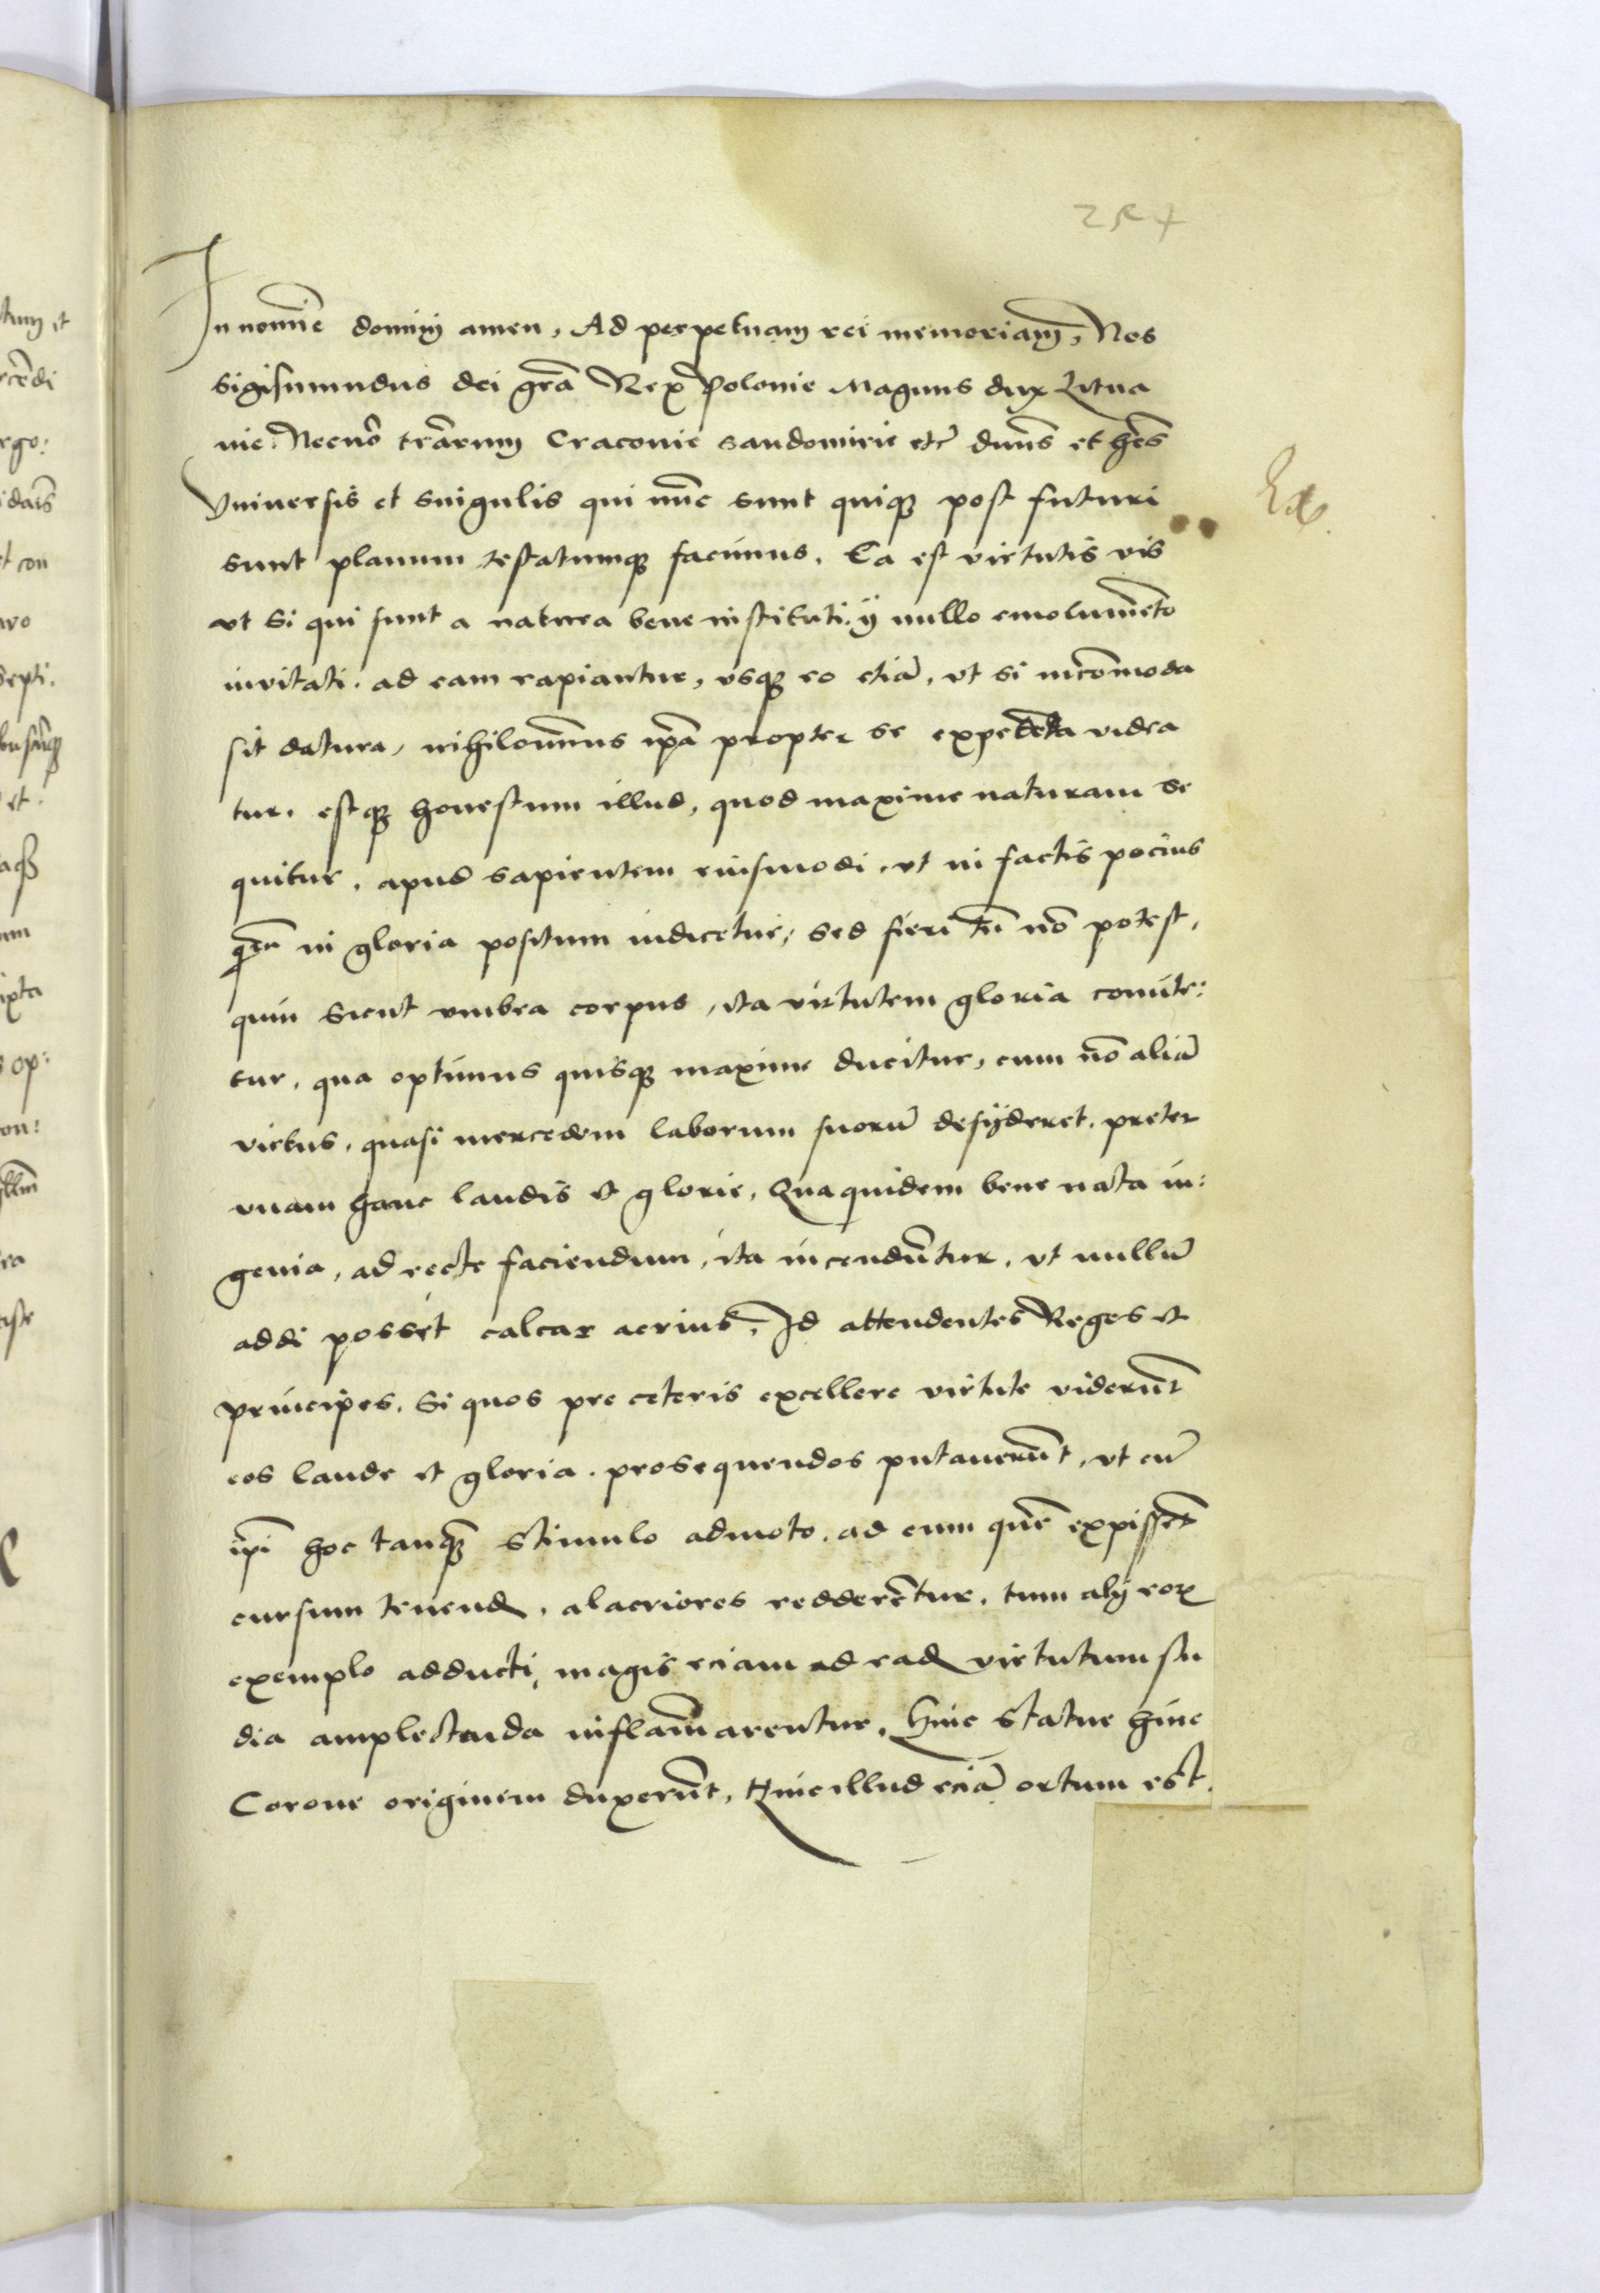 In nomīe dominj amen, Ad perpetuam rei memoriam̄, Nos
sigismundus dei grā Rex Polonie Magnus dux Litua
nie. Necnō trārum Craconie sandomirie etc̄ dnūs et hēs
Vniuersis et singulis qui nūc sunt quiqȝ post futuri
sunt planum testatumqȝ facimus. Ea est virtutis vis
vt si qui sunt a natura bene instituti. ij nullo emolumēto
inuitati. ad eam rapiantur, vsqȝ eo etiā, vt si incōmoda
sit datura, nihilominus ipā propter se expetēda videa
tur. estqȝ honestum illud, quod maxime naturam se
quitur, apud sapientem eiusmodi, vt in factis pocius
quā in gloria positum iudicetur, sed fieri tn̄ nō potest,
quin sicut vmbra corpus, ita virtutem gloria comite:
tur, qua optimus quisqȝ maxime ducitur, cum nō aliā
virtus, quasi mercedem laborum suorū desyderet, preter
vnam hanc laudis et glorie, Qua quidem bene nata in:
genia, ad recte faciendum, ita incendūntur, vt nullū
addi possit calcar acrius, Id attendentes Reges et
principes. Si quos pre ceteris excellere virtute viderūnt
eos laude et gloria. prosequendos putauerūnt, vt cū
ipi hoc tanqȝ stimulo admoto. ad eum quē cepissent
cursum tenend, alacriores redderētur, tum alij eoꝝ
exemplo adducti, magis eciam ad ead virtutum stu
dia amplectenda inflam̄arentur, Hinc statue hinc
Corone originem duxerūnt, Hinc illud eciā ortum est.